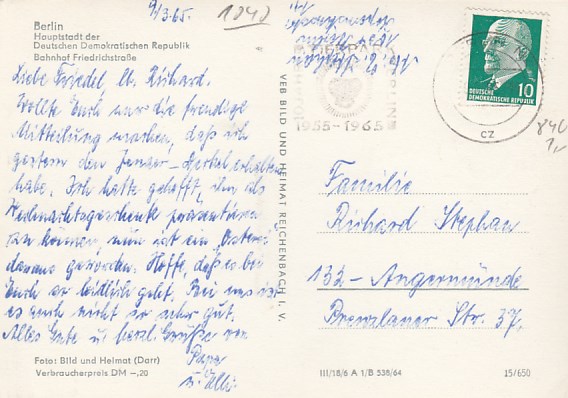 9/3.65.
1040
Berlin
Hauptstadt der
Deutschen Demokratischen Republik
Bahnhof Friedrichstraße
Liebe Friedel, lb. Richard.
Wollte Euch nur die freudige
Mitteilung machen, daß ich
gestern den Jenaer - erhalten
habe. Ich hatte gehofft, ihn als
Weihnachtsgeschenk präsentieren
zu können, nun ist ein „Osterei“
daraus geworden. Hoffe, daß es bei
Euch so leidlich geht. Bei uns ist
es auch nicht so sehr gut.
Alles Gute u. herzl. Grüße von
Papa
u. Illi.
Foto: Bild und Heimat (Darr)
Verbraucherpreis DM -,20
VEB BILD UND HEIMAT REICHENBACH I. V.
TIERPARK
BERLIN
1955-1965
CZ
10
DEUTSCHE
DEMOKRATISCHE REPUBLIK
840
1,-
Familie
Richard Stephan
133.- Angermünde
Prenzlauer Str. 37.
III/18/6 A 1/B 538/64
15/650